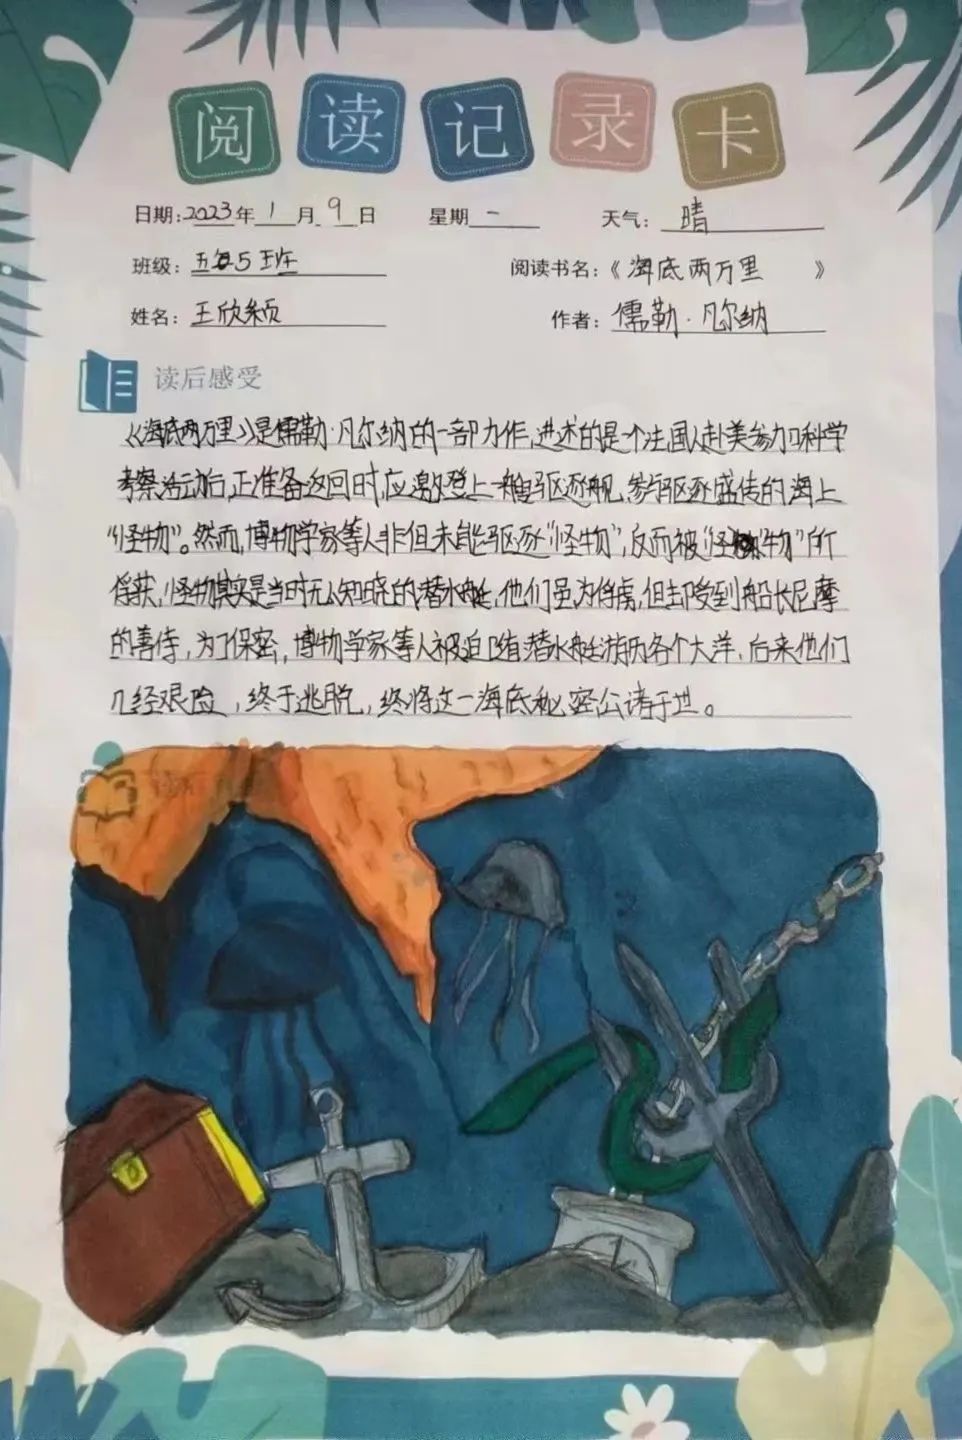 阅读记录卡
日期:2023年1月9日 星期一 天气:晴
班级:五年5班 阅读书名:《海底两万里》
姓名:王欣颖 作者:儒勒·凡尔纳
读后感受
《海底两万里》是儒勒·凡尔纳的一部力作,讲述的是一个法国人赴美参加科学
考察活动后,正准备返回时,应邀登上一艘驱逐舰,参与驱逐盛传的海上
“怪物”。然而,博物学家等人非但未能驱逐“怪物”,反而被“怪物”所
俘获,怪物其实是当时无人知晓的潜水艇,他们虽为俘虏,但却受到船长尼摩
的善待,为了保密,博物学家等人被迫随潜水艇游历各个大洋,后来他们
几经艰险,终于逃脱,终将这一海底秘密公诸于世。